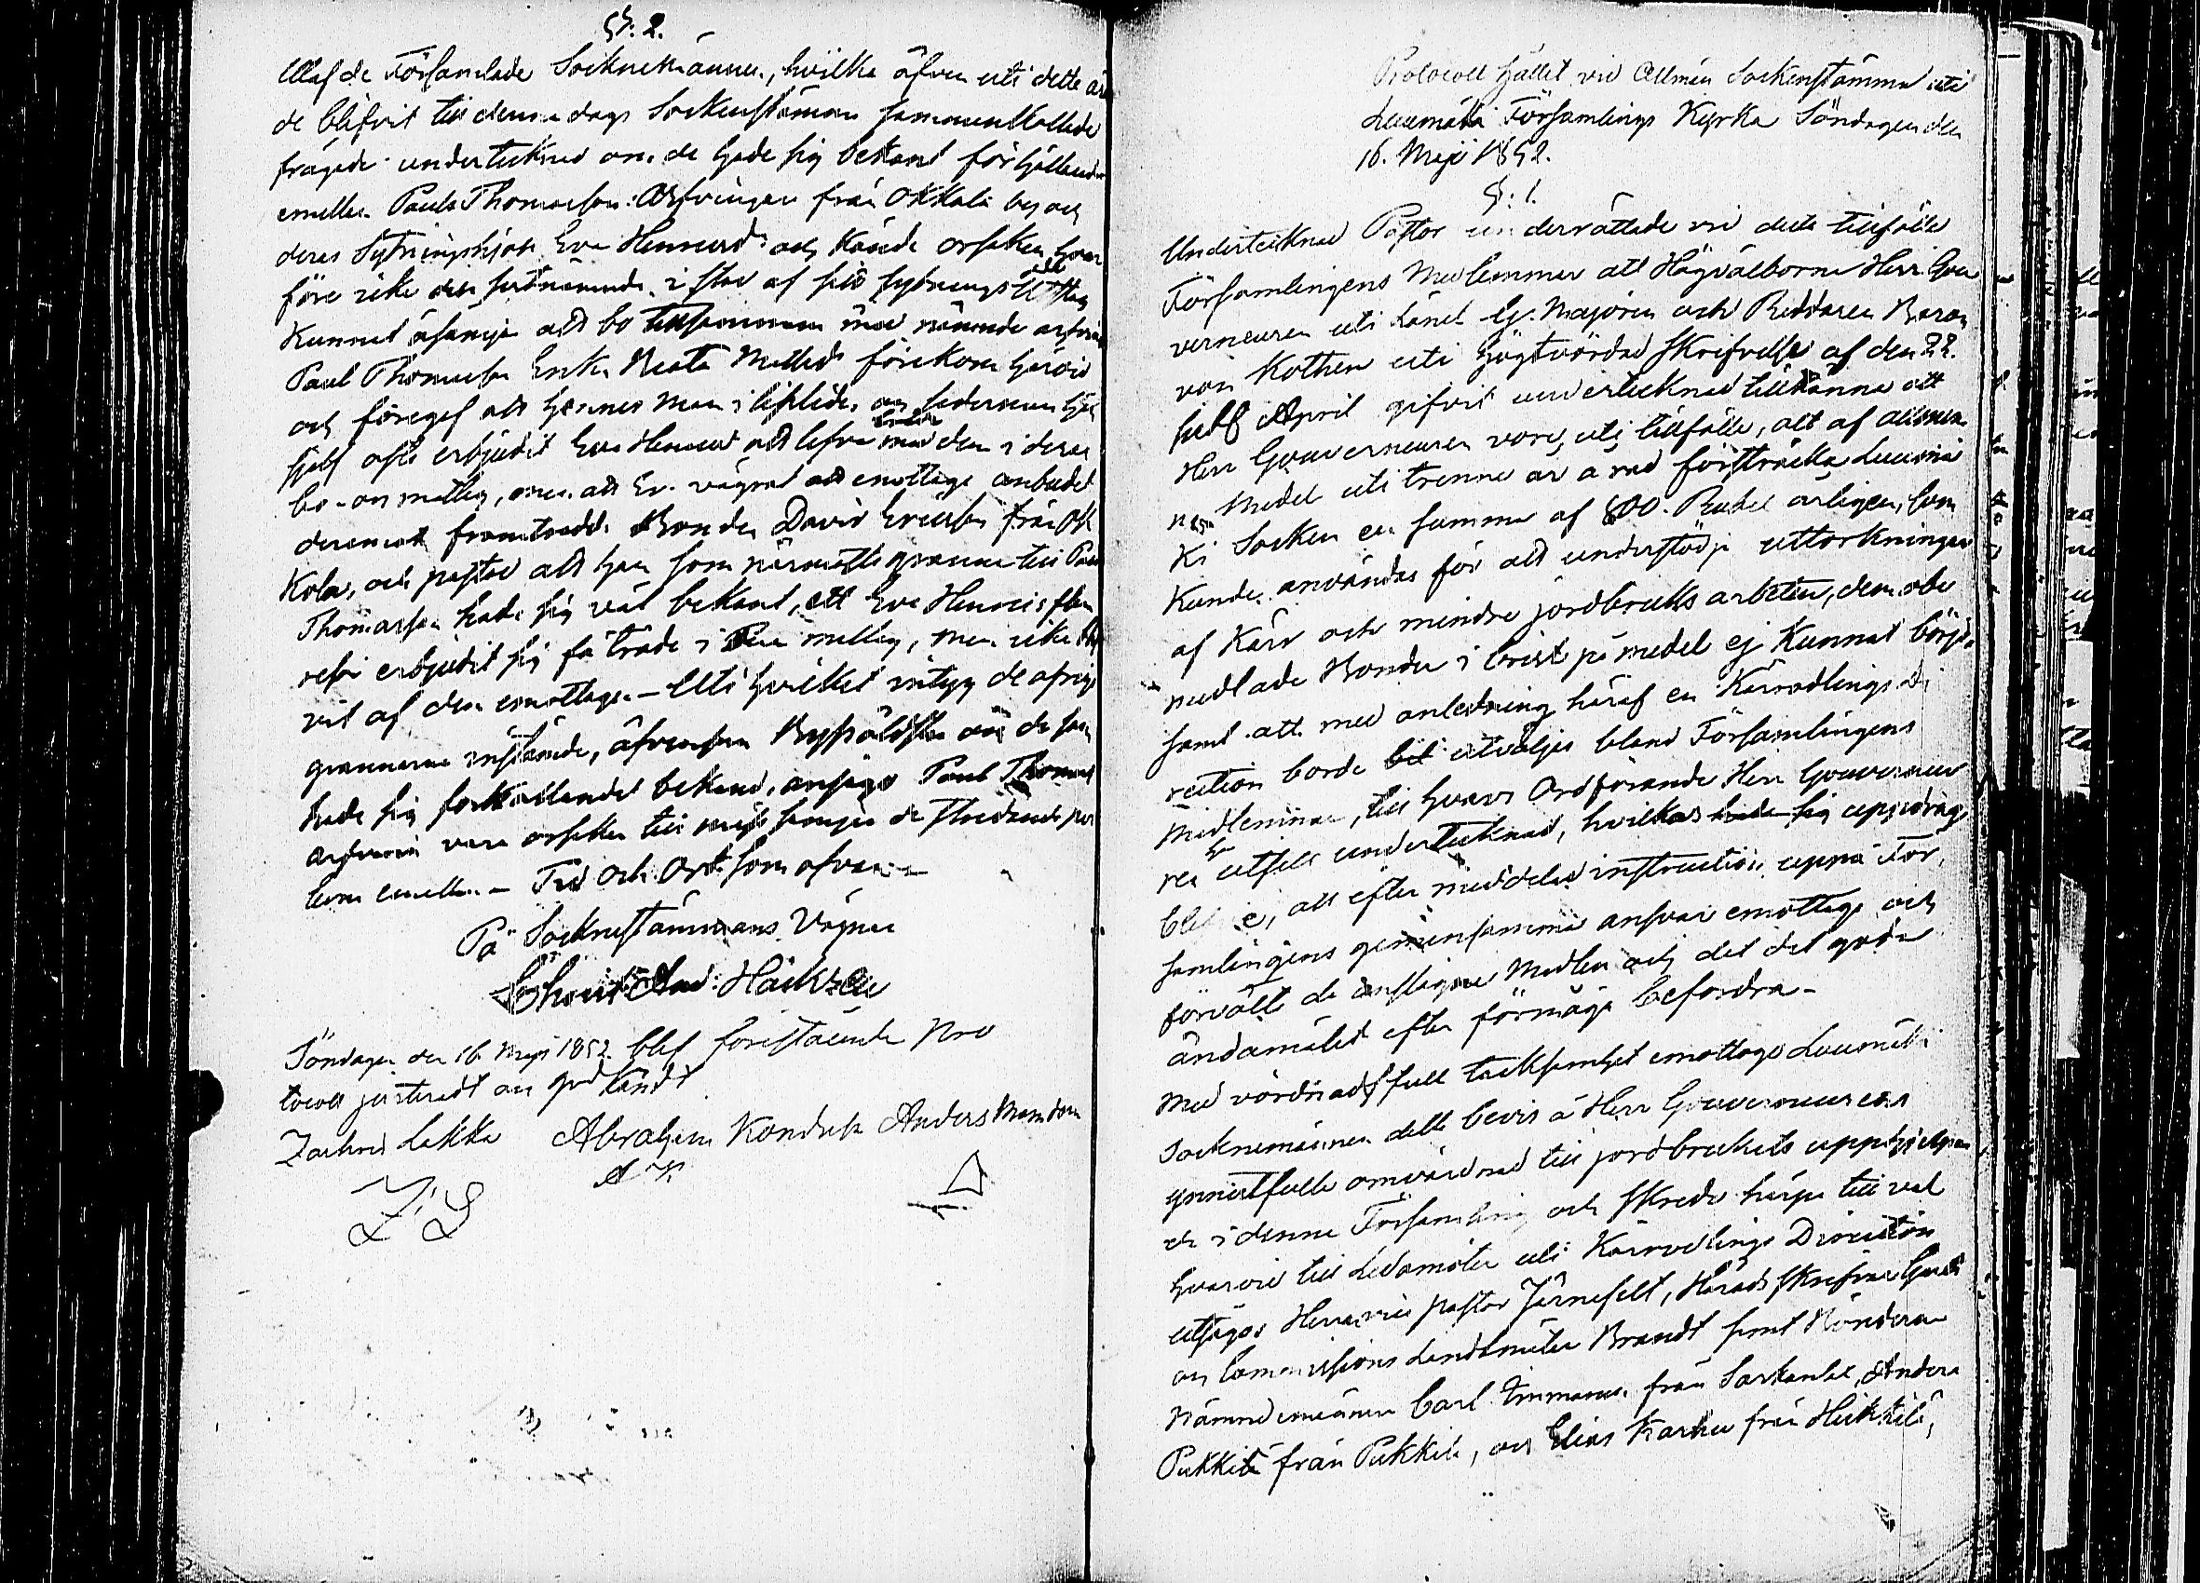 §: 2.
Utaf de Församlade Socknemännen, hvilka äfven uti detta är
de blifvit till denna dags Sockenstämma sammankallade
frågade undertecknad om de hade sig bekant förhållandet
emellan Pauls Thomasson Arfvingar från Okkola by och
deras Sytningshjon Eva Henriksd: och kände orsaken hvar
före icke den sednämnde, i stad af sitt sytnings
Kunnat åtnöja att bo tillsamman med nämnde arfvin
Paul Thomasson Enka Beata Mattsd: förekom härvid
och föregaf att hennes Man i lifstiden och sedermera hon
sjelf ofta erbjudit Eva Henriksd: att lefva med dem i deras
bo och matlag, men att Eva vägrat att emottaga anbudet
deremot framträdde Bonden David Ericsson från Ok
kola, och påstod att han som närmaste granne till Paul
Thomasson hade sig väl bekant, att Eva Henriksdotter
erbjudit sig få träda i matlag, men icke
vit af den emottagen – Uti hvilket intyg de öfrige
grannarne instämde, äfvensom Byåldste och de som
hade sig förhållandet bekant, ansågo Paul Thomas
arfvingar vara orsaken till de stridande par
terne emellan – Tid och Ort som ofvan –
På Socknestämmans Vägnar
Söndagen den 16 Maji 1852 blef förestående Pro
tocoll justeradt och godkändt
Zachris Lakka Abraham Kondula Anders
Z S A K
Protocoll hållet vid Allmän Sockenstämma uti
Luumäki Församlings Kyrka Söndagen den
16. Maji 1852.
§: 1.
Undertecknad Pastor underrättade vid detta tillfälle
Församlingens Medlemmar att Högvälborne Herr Gou
verneuren uti Länet G. Majoren och Riddaren Baron
von Kothen uti högtvördad skrifvelse af den 22.
sistl April gifvit undertecknad tillkänna att
Herr Gouverneuren vore uti tillfälle, att af allmän
na Medel uti trenne år å rad försträcka Luumä
ki Socken en summa af 800. Rubel årligen, som
kunde användas för att understödja uttorkningen
af Kärr och mindre jordbruks arbeten, dem obe
medlade Bönder i brist på medel ej kunnat börja
samt att med anledning häraf en Kärrodlings Di
rection borde utväljas bland Församlingens
Medlemmar, till hvars Ordförande Herr Gouverneu
ren utsett undertecknad, hvilkas uppdrag
blefve, att efter meddelad instruction uppå För
samlingens gemensamma ansvar emottaga och
förvalta de anslagne Medlen och det det goda
ändamålet efter förmåga befordra –
Med vördnadsfull tacksamhet emottogo Luumäki
Socknemännen detta bevis å Herr Gouverneurens
ynnestfulla omvårdnad till jordbrukets upphjelpan
de i denna Församling och skreds härpå till val
hvarvid till Ledamöter uti Kärrodlings Direction
utsågos Herrar vice Pastor Järnefelt, Häradsskrifvare
och Commissions Landtmätar Brandt samt Bönderne
Nämndemännen Carl Immanen från Sarkanlax, Anders
Pukkila från Pukkila, och Elias Karhu från Heikkilä,